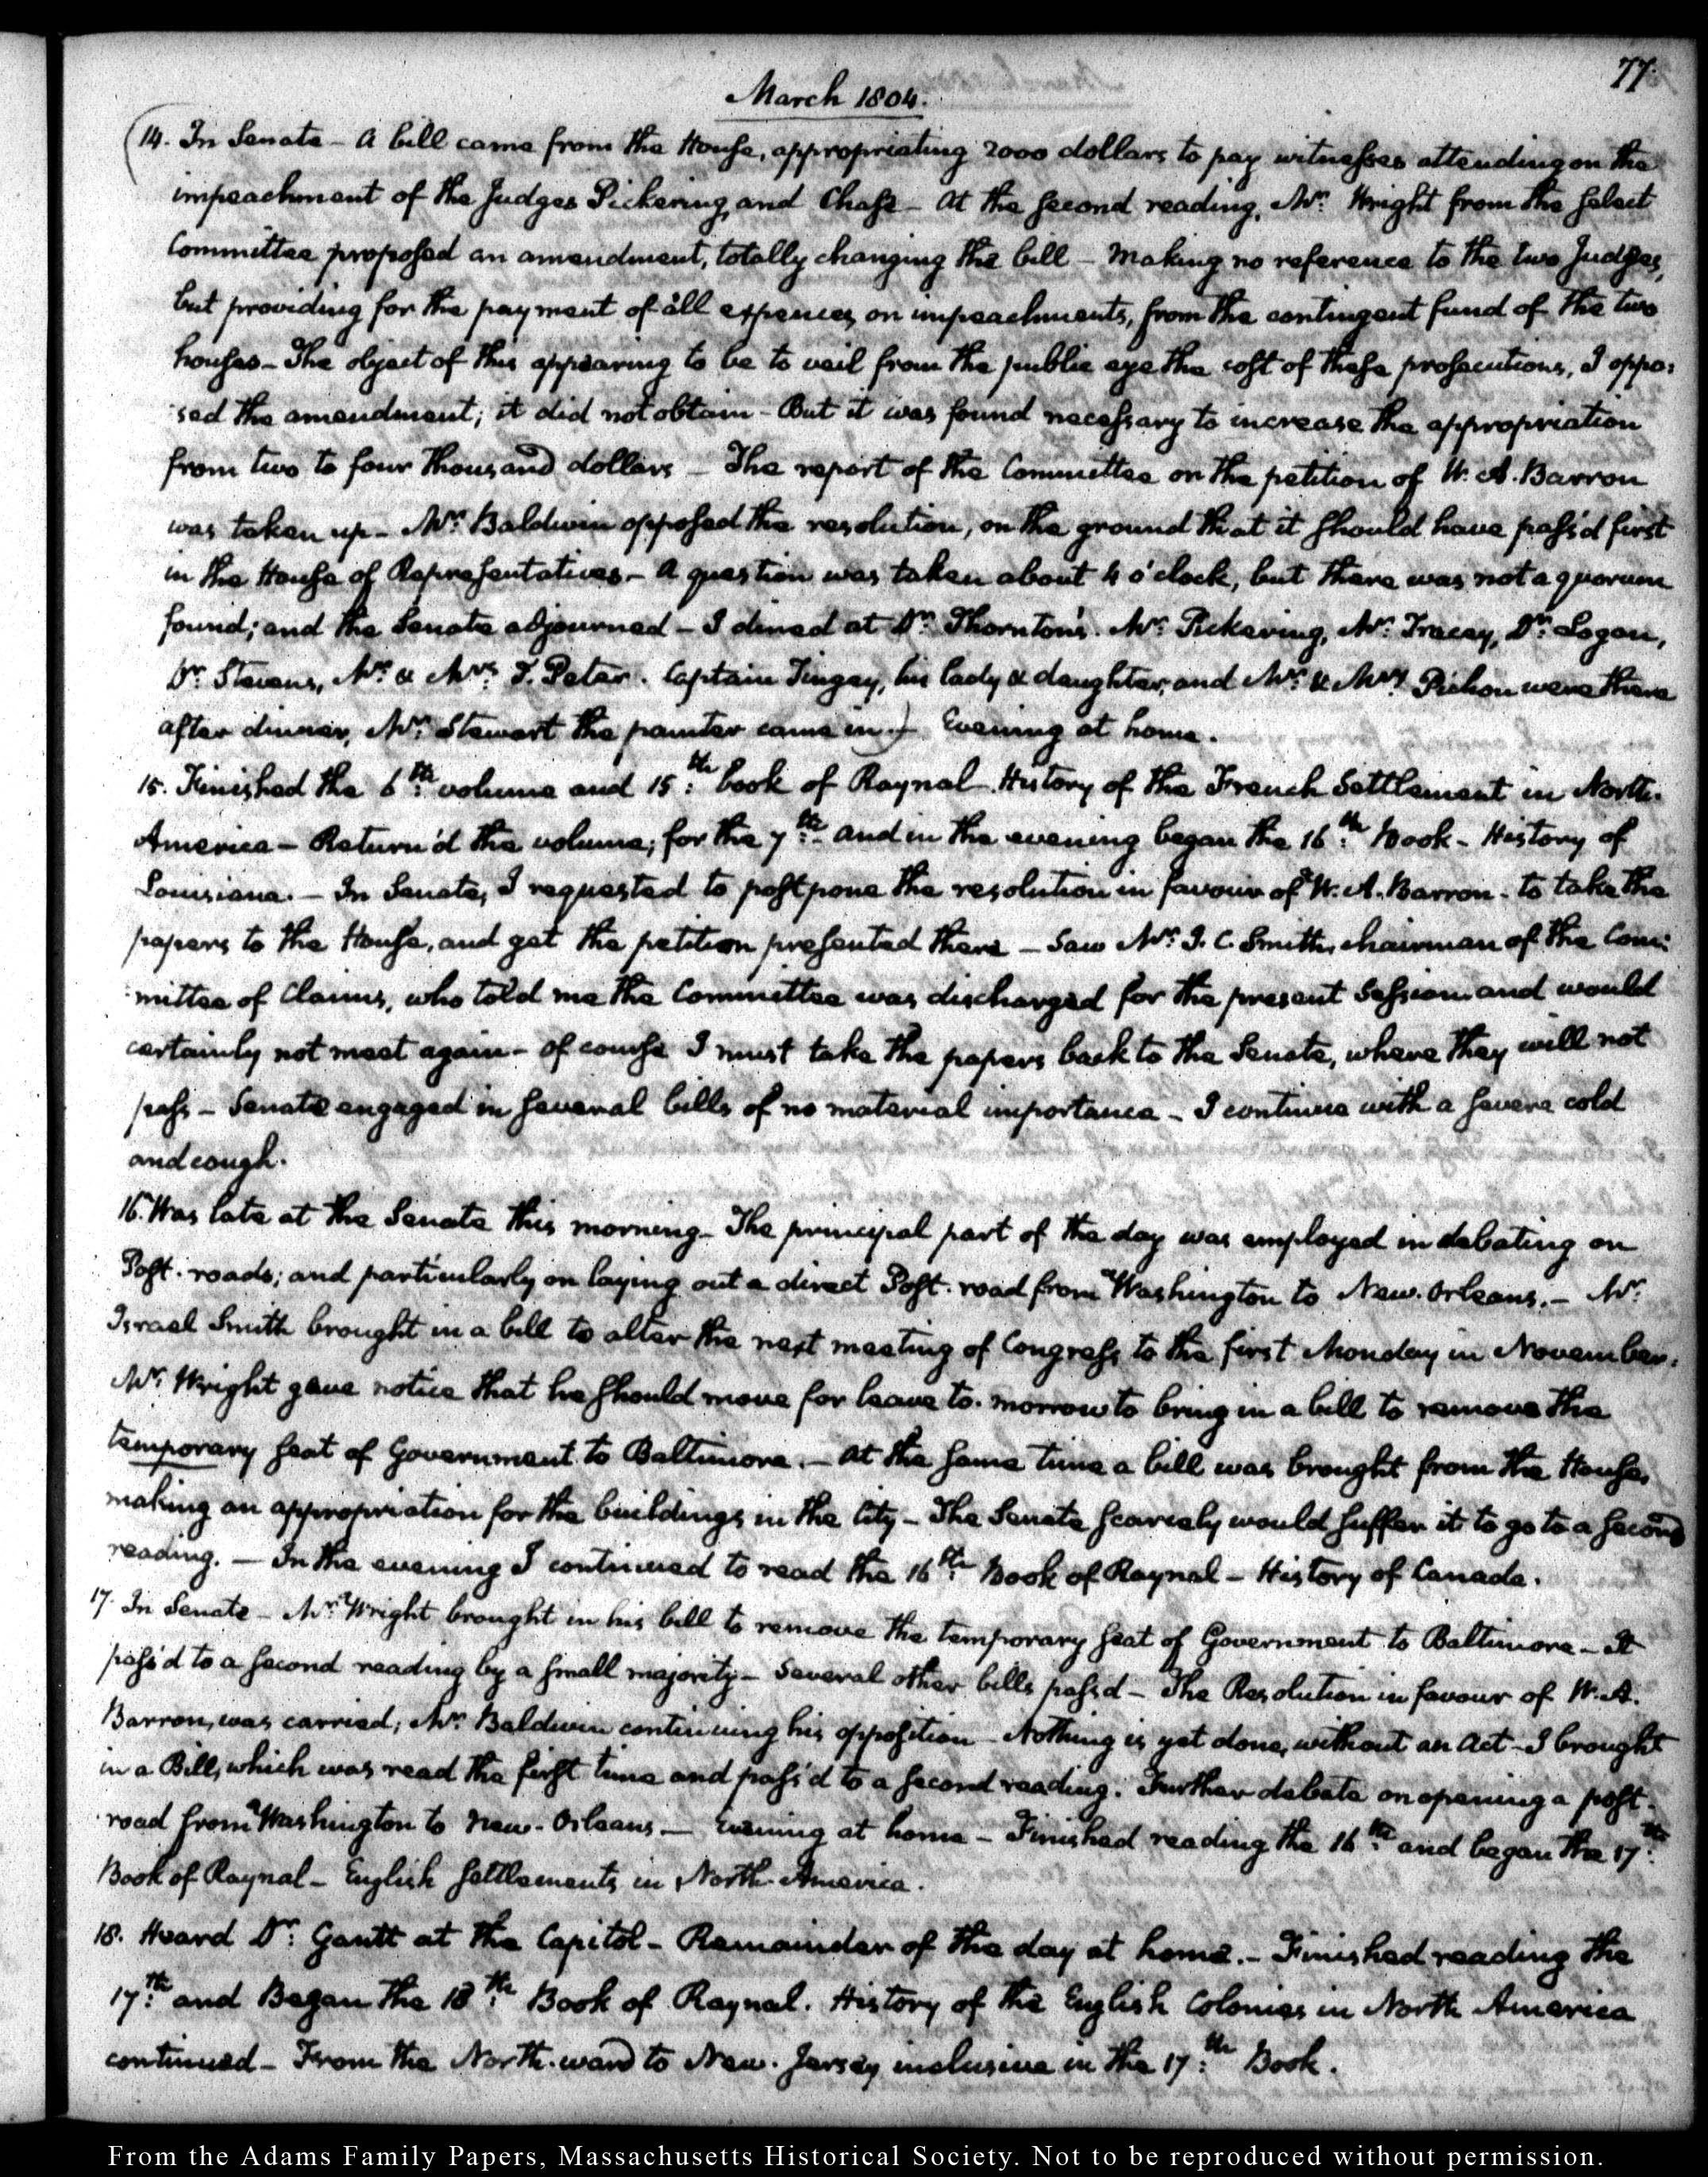 77.
March 1804.
14. In Senate – A bill came from the House, appropriating 2000 dollars to pay witnesses attending on the
impeachment of the Judges Pickering, and Chase – At the second reading, Mr: Wright from the select
Committee proposed an amendment, totally changing the bill – Making no reference to the two Judges,
but providing for the payment of all expences on impeachments, from the contingent fund of the two
houses – The object of this appearing to be to veil from the public eye the cost of these prosecutions, I oppo:
:sed the amendment; it did not obtain – But it was found necessary to increase the appropriation
from two to four thousand dollars – The report of the Committee on the petition of W. A. Barron
was taken up – Mr: Baldwin opposed the resolution, on the ground that it should have pass'd first
in the House of Representatives – A question was taken about 4 o'clock, but there was not a quorum
found; and the Senate adjourned – I dined at Dr: Thornton's. Mr: Pickering, Mr: Tracey, Dr: Logan,
Dr: Stevens, Mr: & Mrs: T. Peter. Captain Tingey, his lady & daughter, and Mr: & Mrs: Pichon were there
after dinner, Mr: Stewart the painter came in.) Evening at home.
15. Finished the 6th: volume and 15:th book of Raynal – History of the French Settlement in North-
America – Return'd the volume, for the 7th: and in the evening began the 16th: Book – History of
Louisiana. – In Senate, I requested to postpone the resolution in favour of W. A. Barron – to take the
papers to the House, and get the petition presented there – Saw Mr: J. C. Smith, chairman of the Com:
:mittee of Claims, who told me the Committee was discharged for the present Session and would
certainly not meet again – of course I must take the papers back to the Senate, where they will not
pass – Senate engaged in several bills of no material importance – I continue with a severe cold
and cough.
16. Was late at the Senate this morning – The principal part of the day was employed in debating on
Post-roads; and particularly on laying out a direct Post-road from Washington to New-Orleans. – Mr:
Israel Smith brought in a bill to alter the next meeting of Congress to the first Monday in November.
Mr: Wright gave notice that he should move for leave to-morrow to bring in a bill to remove the
temporary seat of Government to Baltimore. – At the same time a bill was brought from the House,
making an appropriation for the buildings in the City – The Senate scarcely would suffer it to go to a second
reading. – In the evening I continued to read the 16th: Book of Raynal – History of Canada.
17. In Senate – Mr: Wright brought in his bill to remove the temporary seat of Government to Baltimore – It
pass'd to a second reading by a small majority – Several other bills pass'd – The Resolution in favour of W. A.
Barron, was carried; Mr: Baldwin continuing his opposition – Nothing is yet done, without an Act – I brought
in a Bill, which was read the first time and pass'd to a second reading. Further debate on opening a post-
road from Washington to New-Orleans – Evening at home – Finished reading the 16th: and began the 17th:
Book of Raynal – English settlements in North-America.
18. Heard Dr: Gantt at the Capitol – Remainder of the day at home. – Finished reading the
17:th and Began the 18:th Book of Raynal. History of the English Colonies in North America
continued – From the North-ward to New-Jersey inclusive in the 17:th Book.
From the Adams Family Papers, Massachusetts Historical Society. Not to be reproduced without permission.